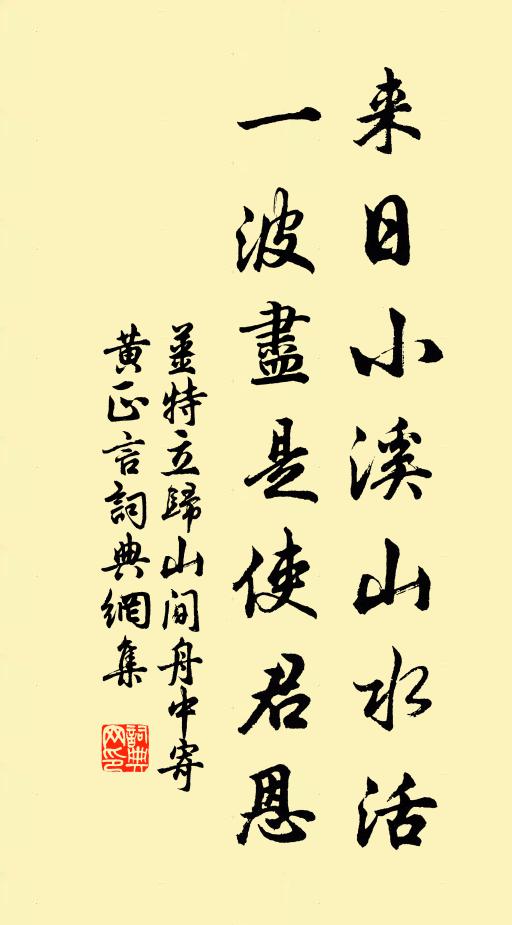 来日小溪山水活
一波盡是使君恩
姜特立歸山間舟中寄
黄正言詞典網集
詞典网印